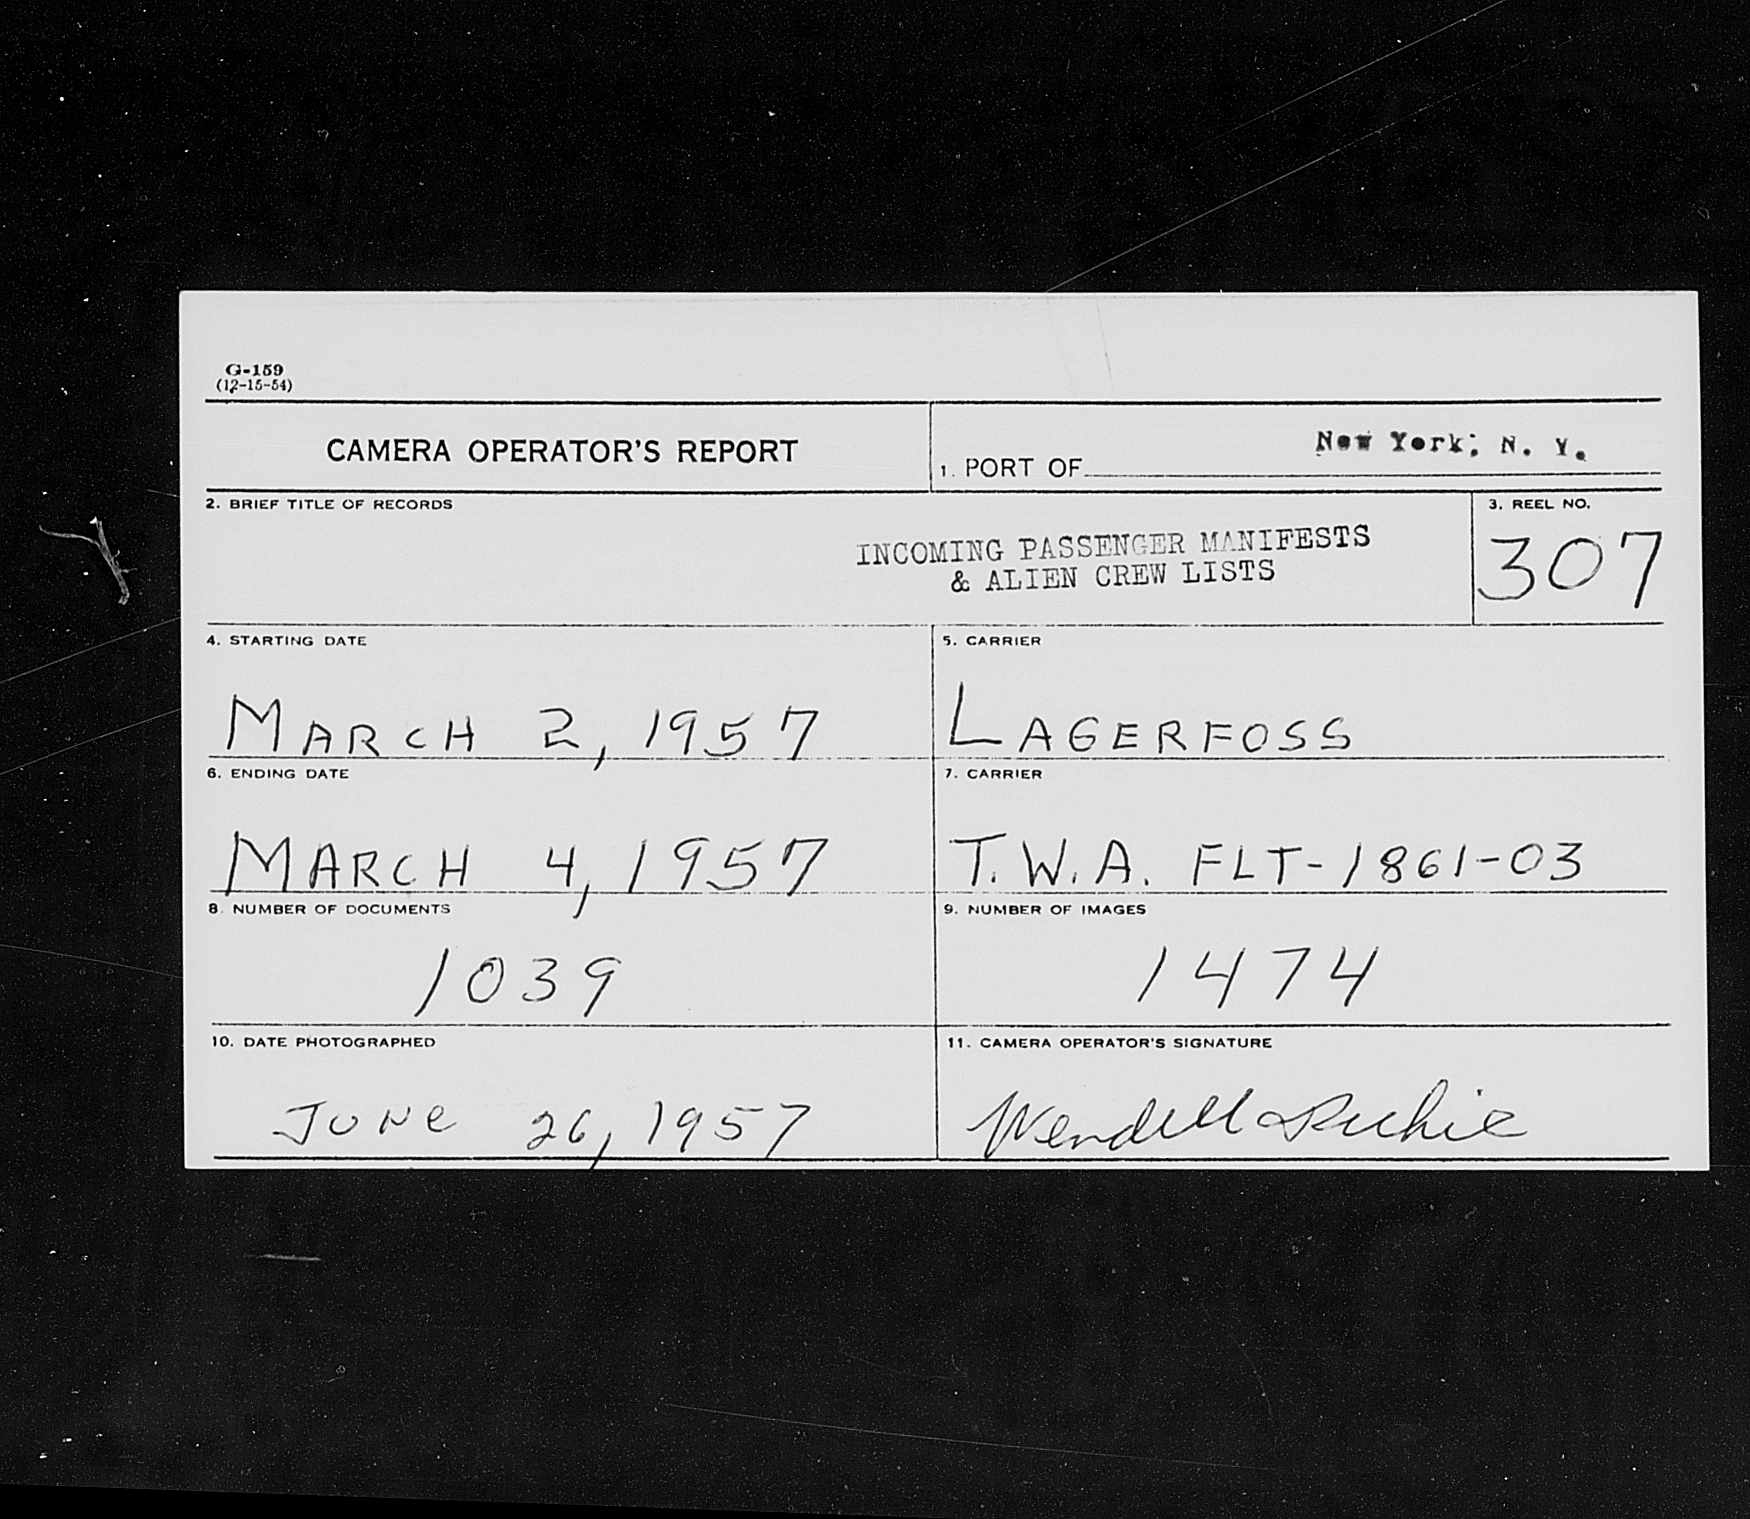 G-159
(12-15-54)
CAMERA OPERATOR'S REPORT
1. PORT OF New York, N. Y.
2. BRIEF TITLE OF RECORDS
INCOMING PASSENGER MANIFESTS
& ALIEN CREW LISTS
3. REEL NO.
307
4. STARTING DATE
MARCH 2, 1957
5. CARRIER
LAGERFOSS
6. ENDING DATE
MARCH 4, 1957
7. CARRIER
T.W.A. FLT-1861-03
8. NUMBER OF DOCUMENTS
1039
9. NUMBER OF IMAGES
1474
10. DATE PHOTOGRAPHED
JUNe 26, 1957
11. CAMERA OPERATOR'S SIGNATURE
Wendell